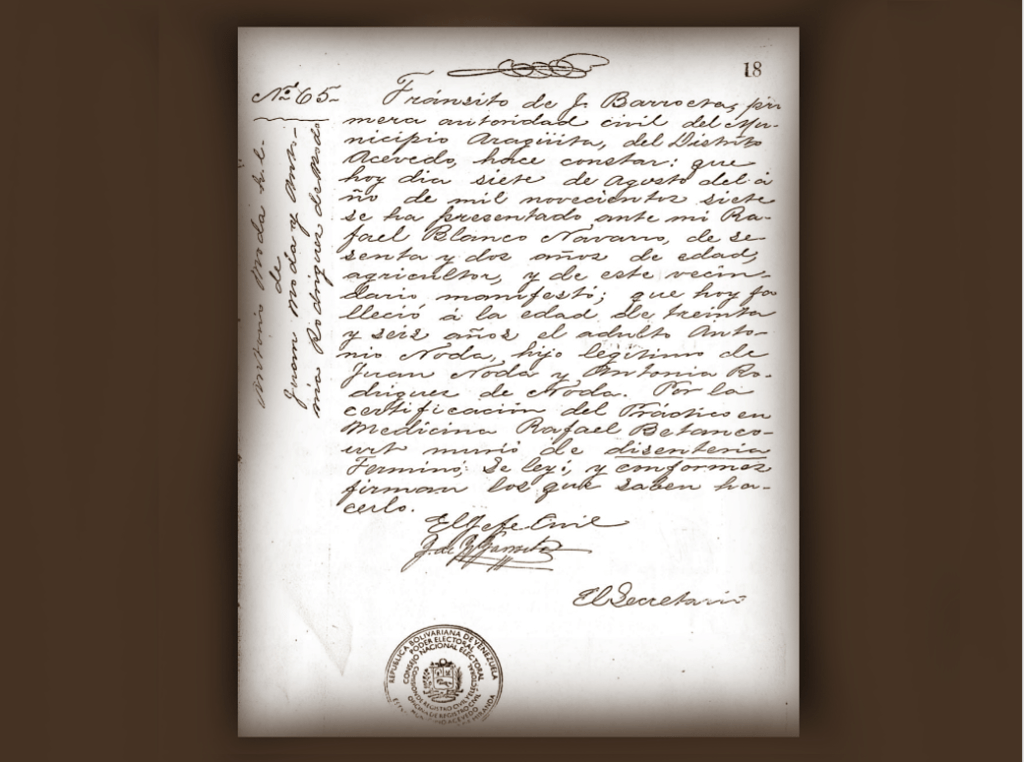 18
Nº 65-
Antonio Noda h. l.
de
Juan Noda y Anto-
nia Rodriguez de Noda
Tránsito de J. Barroeta, pri
mera autoridad civil del Mu-
nicipio Aragüita, del Distrito
Acevedo, hace constar: que
hoy dia siete de Agosto del a
ño de mil novecientos siete
se ha presentado ante mi Ra-
fael Blanco Navarro, de se-
senta y dos años de edad,
agricultor, y de este vecin-
dario manifestó; que hoy fa
lleció á la edad de treinta
y seis años el adulto Anto-
nio Noda, hijo legítimo de
Juan Noda y Antonia Ro-
driguez de Noda. Por la
certificación del Práctico en
Medicina Rafael Betanco-
urt murió de disenteria
Terminó; Se leyó; y conformes
firman los que saben ha-
cerlo.
El Jefe Civil
El Secretario
REPÚBLICA BOLIVARIANA DE VENEZUELA
PODER ELECTORAL
CONSEJO NACIONAL ELECTORAL
COMISION DE REGISTRO CIVIL Y ELECTORAL
OFICINA DE REGISTRO CIVIL
ACEVEDO
MIRANDA